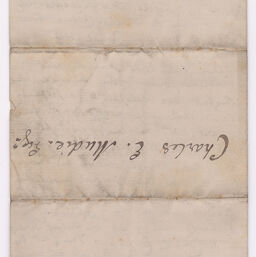 Charles E. Mudie. Esqr.